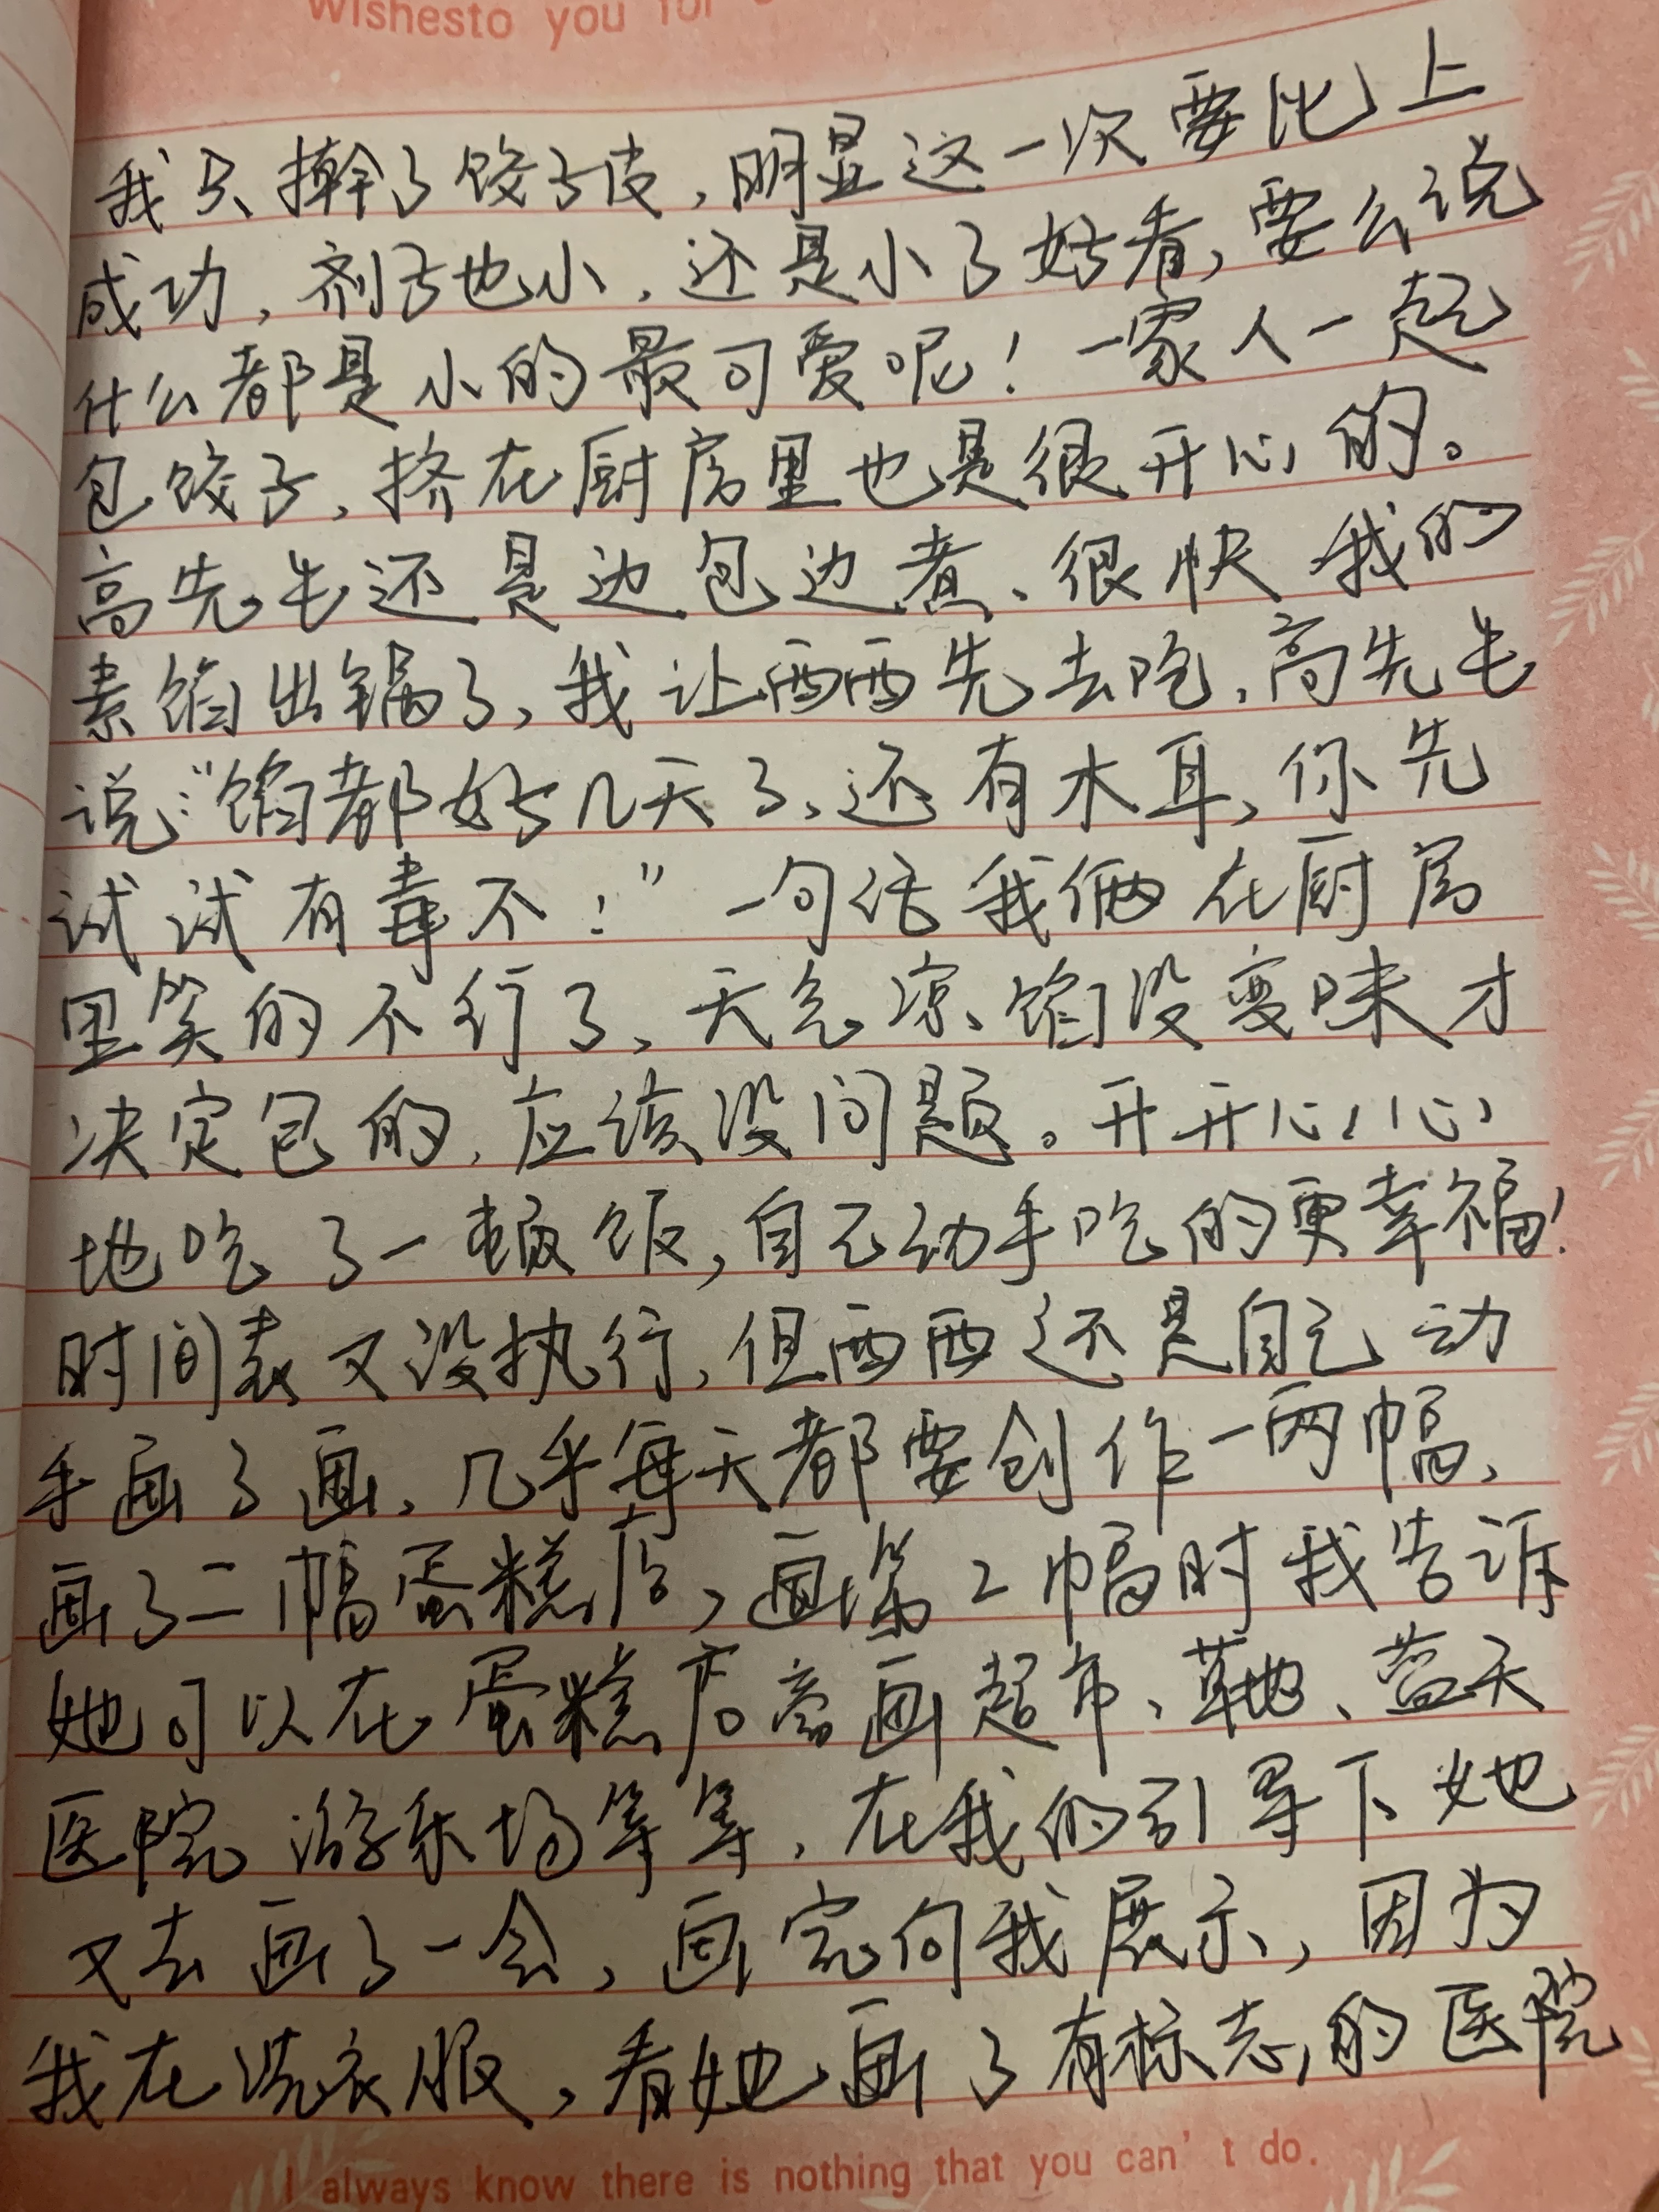 Wishesto you for
我只擀了饺子皮，明显这一次要比上
成功，剂子也小，还是小了好看，要么说
什么都是小的最可爱呢！一家人一起
包饺子，挤在厨房里也是很开心的。
高先生还是边包边煮、很快我的
素馅出锅了，我让西西先去吃，高先生
说：“馅都好几天了，还有木耳，你先
试试有毒不！”一句话我俩在厨房
里笑的不行了、天气凉、馅没变味才
决定包的，应该没问题。开开心心
地吃了一顿饭，自己动手吃的更幸福！
时间表又没执行，但西西还是自己动
手画了画，几乎每天都要创作一两幅、
画了二幅蛋糕店，画第2幅时我告诉
她可以在蛋糕店旁画超市、草地、蓝天
医院 游乐场等等，在我的引导下她
又去画了一会，画完向我展示，因为
我在洗衣服，看她画了有标志的医院
I always know there is nothing that you can't do.